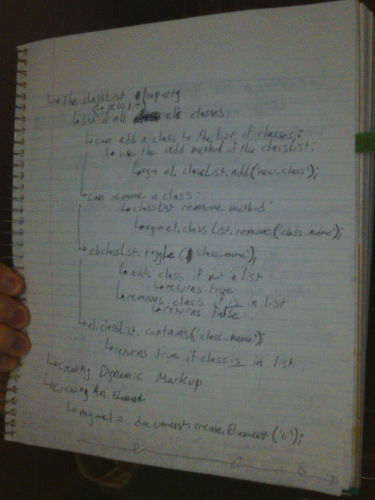 The classList property
(el.classList)
List of all el's classes
can add a class to the list of classes:
use the add method of the classList:
eg → el.classList.add('new.class');
can remove a class:
classList remove method:
eg → el.classList.remove('class.name');
el.classList.toggle('class.name');
adds class if not in list
returns true
removes class if is in list
returns false
el.classList.contains('class.name')
returns true if class is in list
Creating Dynamic Markup
Creating An Element
= document.createElement(